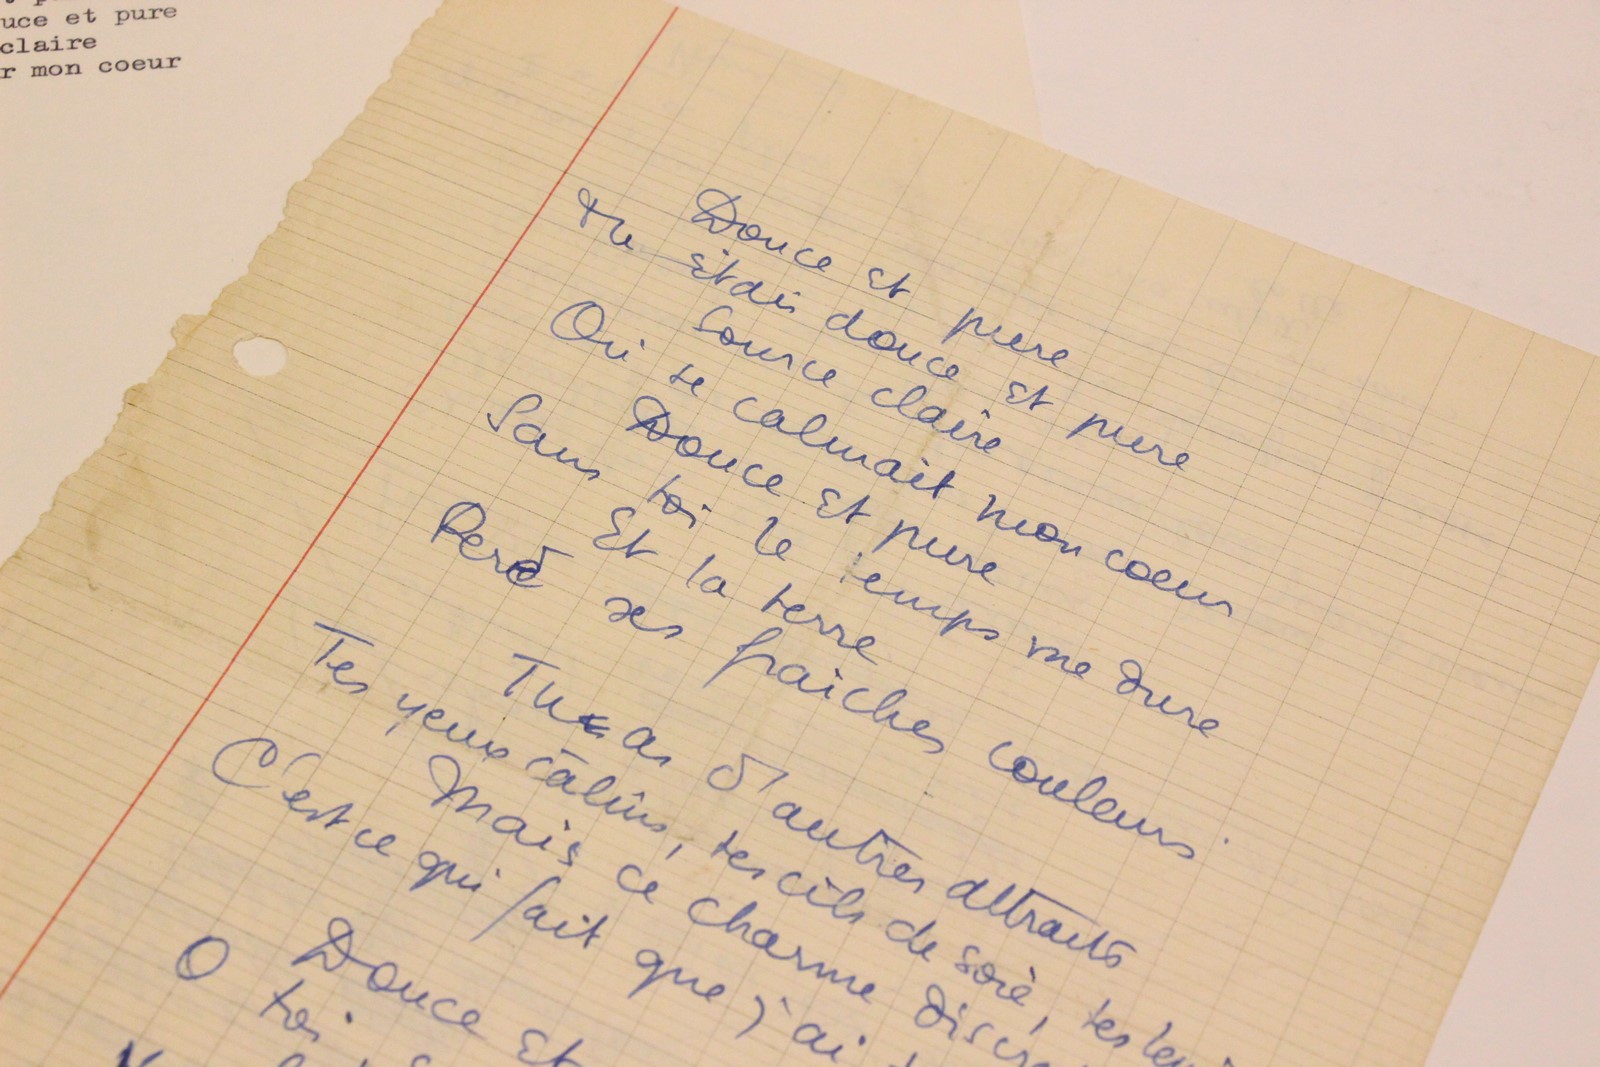 uce et pure
claire
r mon coeur
Douce et pure
Tu étais douce et pure
Source claire
Où se calmait mon coeur
Douce et pure
Sans toi le temps me dure
Et la terre
Perd ses fraîches couleurs
Tu as d'autres attraits
Tes yeux câlins, tes cils de soie, tes
Mais ce charme
C'est ce qui fait que j'ai
Douce et
O toi